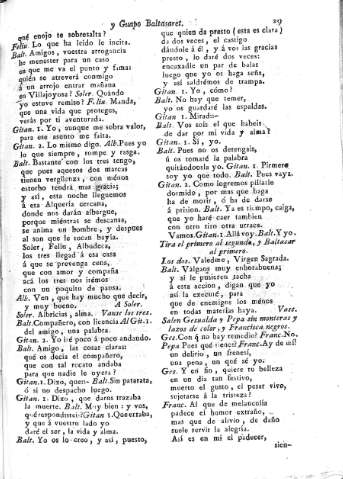 y Guapo Baltasaret. 29
qué enojo te sobresalta?
Felix. Lo que ha leido le incita.
Balt. Amigos, vuestra arrogancia
he menester para un caso
en que me va el punto y famas
quién se atreverá conmigo
á un arrojo entrar mañana
en Villajoyosa? Soler. Quándo
yo estuve remiso? Felix. Manda,
que una vida que protegen,
verás por tí aventurada.
Gitan. 1. Yo, aunque me sobra valor,
para ese asento me falta.
Gitan. 2. Lo mismo digo. Alb. Pues yo
lo que siempre, rompe y rasga.
Balt. Bastante con los tres tengo,
que pues aquestos dos marcas
tienen vergüenza, con menos
estorbo tendrá mas gracia;
y así, esta noche lleguemos
á esta Alquería cercana,
donde nos darán albergue,
porque, miéntras se descansa,
se anima un hombre, y despues
al son que le tocan bayla.
Soler, Felix, Albudeca,
los tres llegad á esa casa
á que se prevenga cena,
que con amor y compaña
acá los tres nos iremos
con un poquito de pausa.
Alb. Ven, que hay mucho que decir,
y muy bueno. A Soler.
Soler. Albricias, alma. Vanse los tres.
Balt. Compañero, con licencia Al Git. 1.
del amigo, una palabra.
Gitan. 2. Yo iré poco á poco andando.
Balt. Amigo, las cosas claras:
qué os decia el compañero,
que con tal recato andaba
para que nadie lo oyera?
Gitan. 1. Dixo, quen- Balt. Sin patarata,
ó si no despacho luego.
Gitan. 1. Dixo, que daros trazaba
la muerte. Balt. Muy bien: y vos,
qué respondisteis? Gitan. 1. Que erraba,
y que á vuestro lado yo
daré el ser, la vida y alma.
Balt. Yo os lo creo, y así, puesto,
que quien da presto (esta es clara)
da dos veces, el castigo
dándole á él, y á vos las gracias
presto, lo daré dos veces:
encaxadle en par de balas
luego que yo os haga seña,
y así saldrémos de trampa.
Gitan. 1. Yo, cómo?
Balt. No hay que temer,
yo os guardaré las espaldas.
Gitan. 1. Mirad-
Balt. Vos sois el que habeis
de dar por mi vida y alma?
Gitan. 1. Sí, yo.
Balt. Pues no os derengais,
ú os tomaré la palabra
quitándoosla yo. Gitan. 1. Primero
soy yo que todo. Balt. Pues vaya.
Gitan. 2. Como logremos pillarle
dormido, por mas que haga
ha de morir, ó ha de darse
á prision. Balt. Ya es tiempo, calga,
que yo haré caer tambien
con otro tiro otra urraca.
Vamos. Gitan. 1. Allá voy. Balt. Y yo.
Tira el primero al segundo, y Baltasar
al primero.
Los dos. Valedme, Vírgen Sagrada.
Balt. Valgaos muy enhorabuena;
y si le pusieren tacha
á esta accion, digan que yo
así la executé, para
que de enemigos los ménos
en todas materias haya. Vase.
Salen Gesualda y Pepa sin monteras y
lazos de color, y Francisca negros.
Ges. Con qué no hay remedio? Franc. No.
Pepa. Pues qué tienes? Franc. Ay de mí!
un delirio, un frenesí,
una pena, un qué sé yo.
Ges. Y en fin, quiere tu belleza
en un dia tan festivo,
muerto el gusto, el pesar vivo,
sujetarse á la tristeza?
Franc. Al que de melancolía
padece el humor extraño,
mas que de alivio, de daño
suele servir la alegría.
Así es en mí el padecer,
sien-